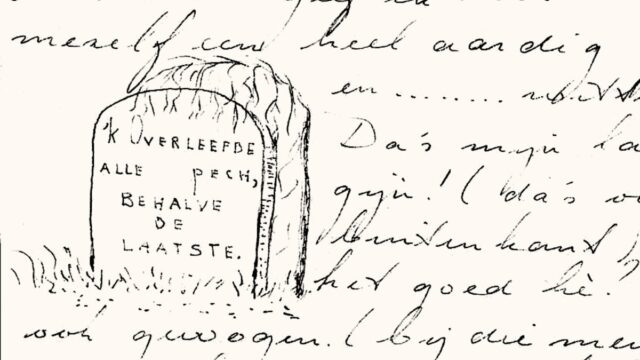 mezelf een heel aardig
en ........
'k OVERLEEFDE
ALLE PECH,
BEHALVE
DE
LAATSTE.
Da's mijn
( da's
buitenkant )
het goed hè.
ook gewogen. ( bij die